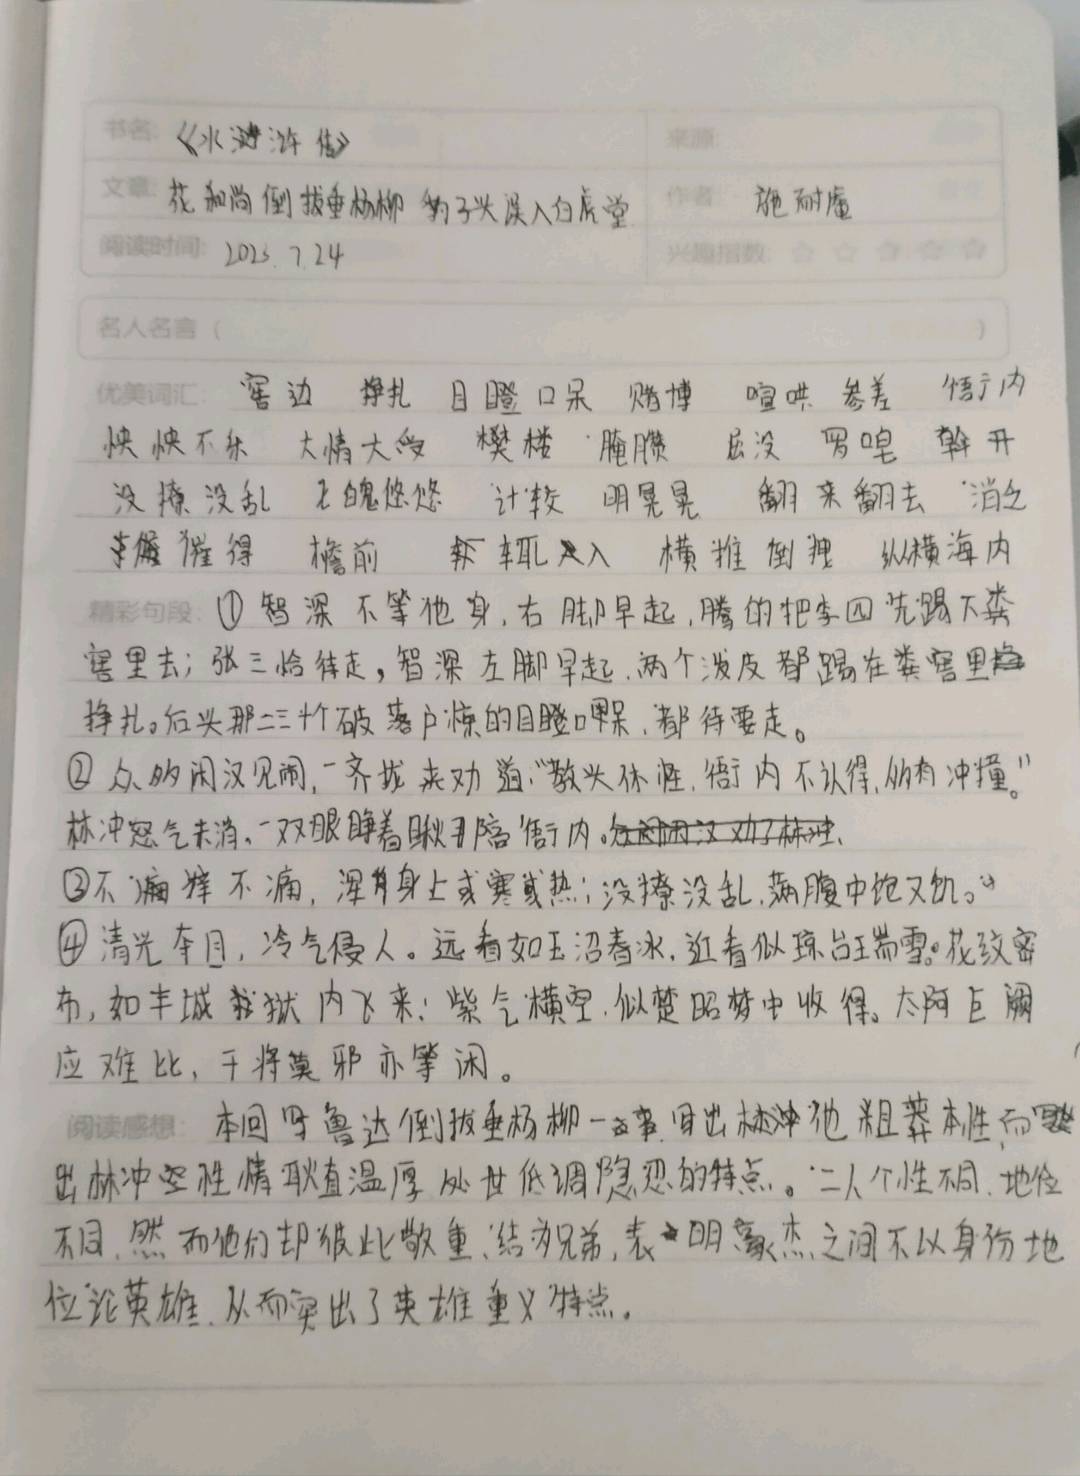 书名: 《水浒传》 来源:
文章: 花和尚倒拔垂杨柳 豹子头误入白虎堂 作者 施耐庵
阅读时间: 2023.7.24 兴趣指数: ☆ ☆ ☆ ☆ ☆
名人名言 ( )
优美词汇: 窖边 挣扎 目瞪口呆 赌博 喧哄 参差 衙内
怏怏不乐 大情大受 樊楼 腌臜 屈没 啰唣 斡开
没撩没乱 计较 明晃晃 翻来翻去 消乏
獾得 檐前 入 横推倒拽 纵横海内
精彩句段: ①智深不等他身,右脚早起,腾的把李四先踢下粪
窖里去;张三恰待走,智深左脚早起,两个泼皮都踢在粪窖里
挣扎。后头那二三十个破落户惊的目瞪口呆,都待要走。
②众多闲汉见闹,一齐拢来劝道:“教头休怪,衙内不认得,多有冲撞。”
林冲怒气未消,一双眼睁着瞅那高衙内。
③不痒不痛,浑身上或寒或热;没撩没乱,满腹中饱又饥。”
④清光夺目,冷气侵人。远看如玉沼春冰,近看似琼台瑞雪。花纹密
布,如丰城狱内飞来;紫气横空,似楚昭梦中收得。太阿巨阙
应难比,干将莫邪亦等闲。
阅读感想: 本回写鲁达倒拔垂杨柳一事,写出他粗莽本性,而
出林冲性情耿直温厚处世低调隐忍的特点。二人个性不同,地位
不同,然而他们却彼此敬重,结为兄弟,表明豪杰之间不以身份地
位论英雄,从而突出了英雄重义特点。